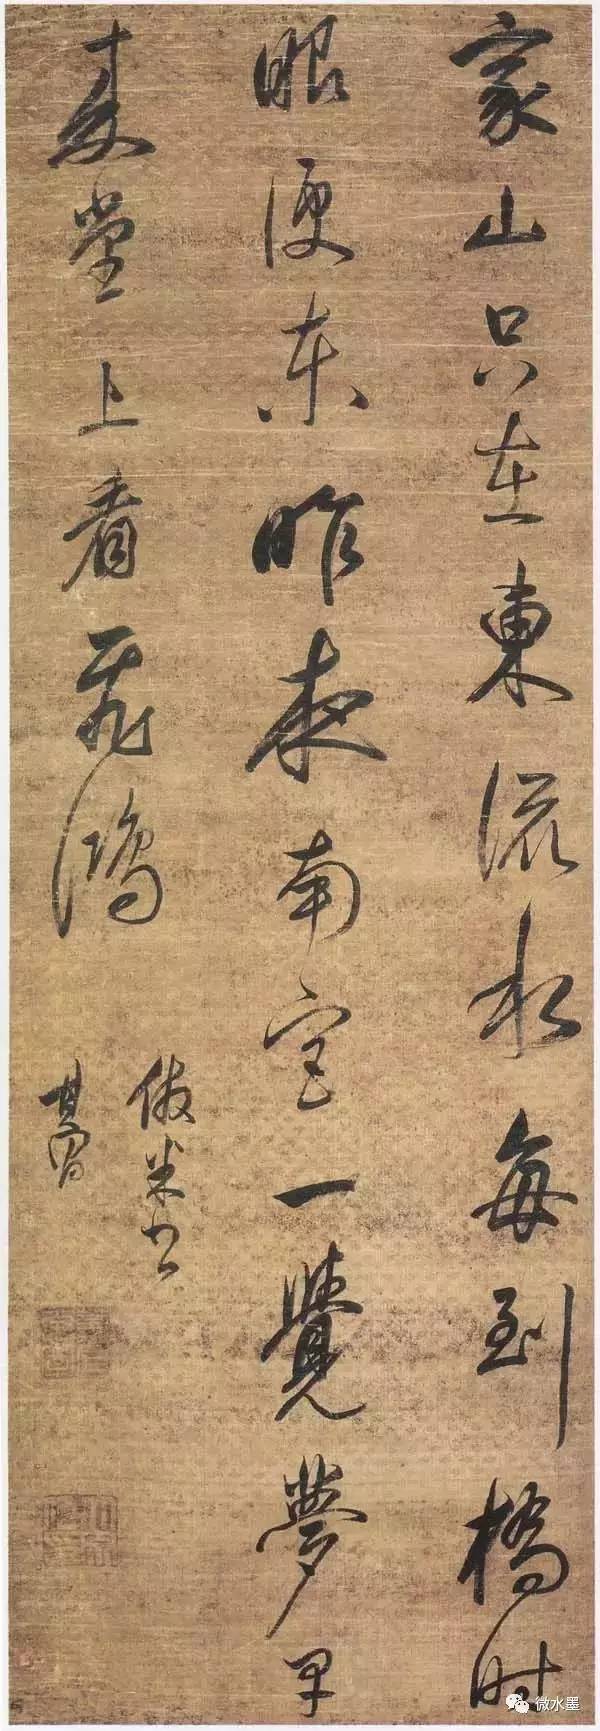 家山只在東流水每到橋時
眼便东昨夜南窓一覺夢早
來堂上看飛鴻
倣米書
其昌
微水墨